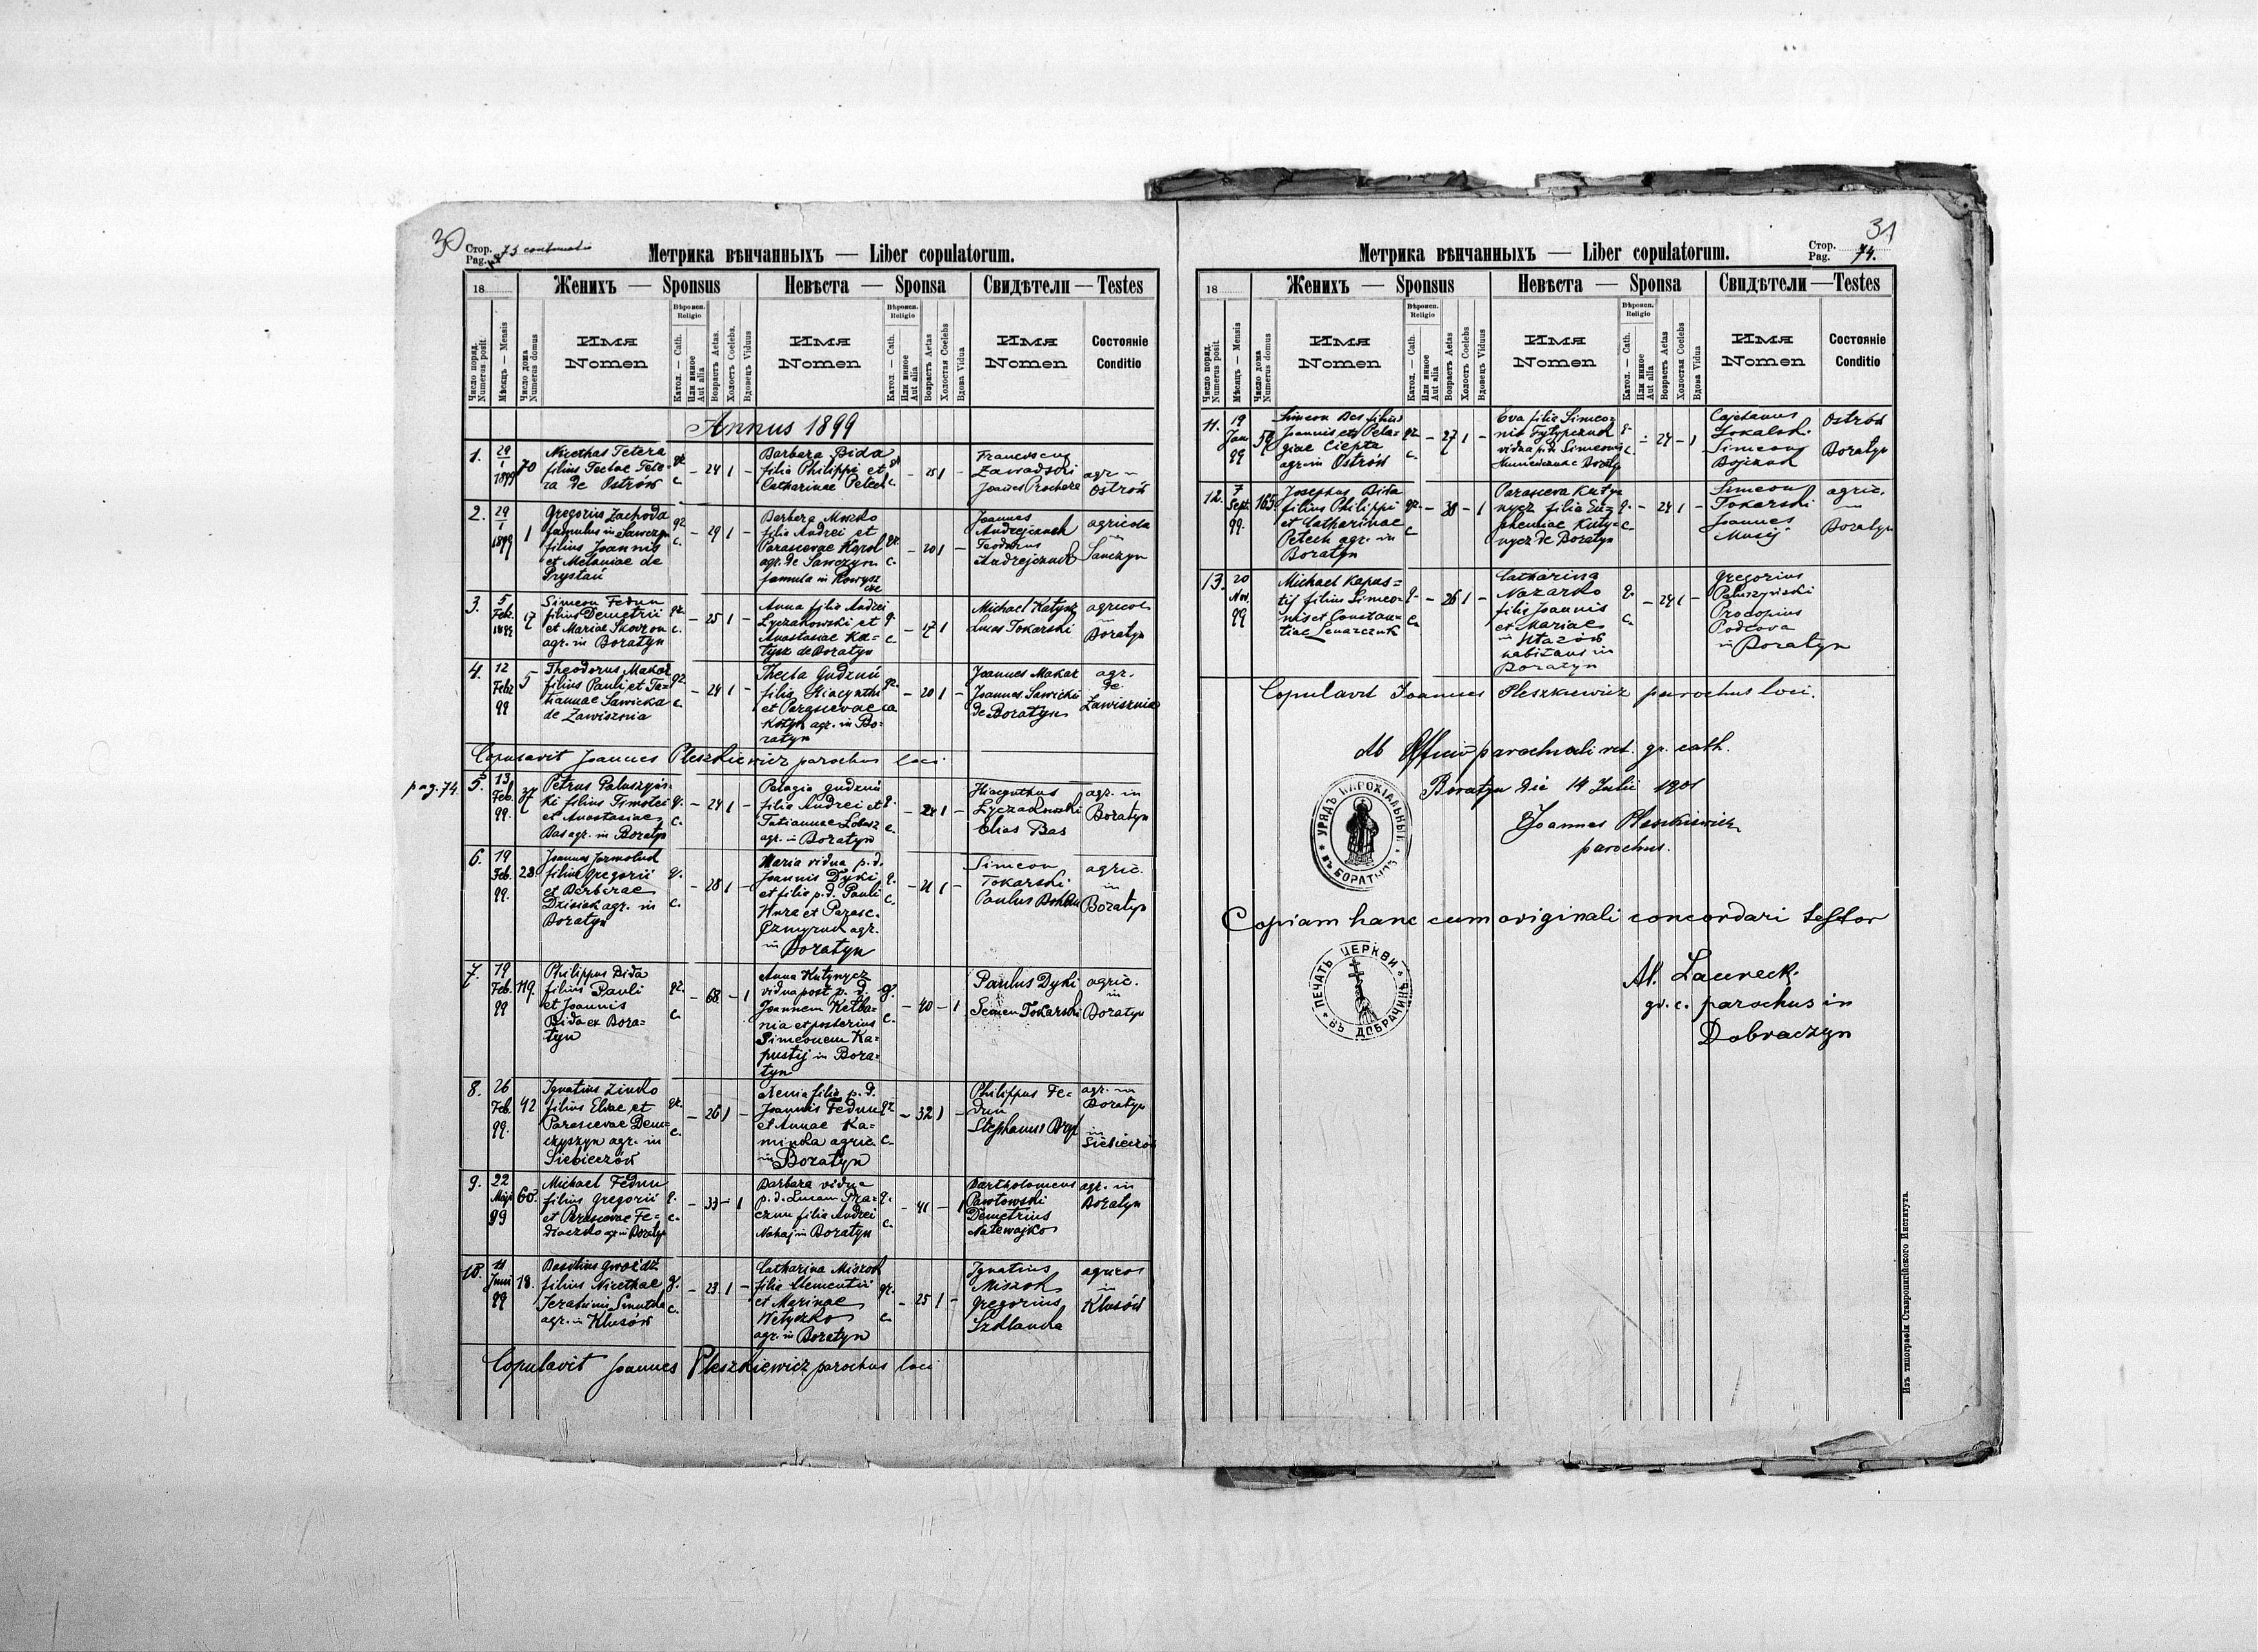 30
Стор.
Pag. 73 continuatio
Метрика вѣнчанныхъ — Liber copulatorum.
18
Женихъ — Sponsus
Невѣста — Sponsa
Свидѣтели — Testes
Число поряд.
Numerus posit.
Мѣсяцъ — Mensis
Число дома
Numerus domus
Имя
Nomen
Вѣроисп.
Religio
Катол. — Cath.
Или иное
Aut alia
Возрастъ Aetas.
Холостъ Coelebs.
Вдовецъ Viduus
Имя
Nomen
Вѣроисп.
Religio
Катол. — Cath.
Или иное
Aut alia
Возрастъ Aetas
Холостая Coelebs
Вдова Vidua
Имя
Nomen
Состояніе
Conditio
Annus 1899
1. 29/1 1899 70
Nicethas Tetera
filius Teclae Tete-
ra de Ostrów
gr. c. — 24 1 —
Barbara Bida
filia Philippi et
Catharinae Petech
gr. c. — 25 1 —
Franciscus
Zawadski
Joannes Prochera
agr. in
Ostrów
2. 29/1 1899 1
Gregorius Zachoda
famulus in Sawczyn
filius Joannis
et Melaniae de
Prystań
gr. c. — 29 1 —
Barbara Mozko
filia Andrei et
Parascevae Korol
agr. de Sawczyn
famula in
gr. c. — 20 1 —
Joannes
Andrejczuk
Teodorus
Andrejczuk
agricola
in
Sawczyn
3. 5 Feb. 1899 17
Simeon Fedun
filius Demetrii
et Mariae Skorzon
agr. in Boratyn
gr. c. — 25 1 —
Anna filia Andrei
Łyczakowski et
Anastasiae Ka-
tysz de Boratyn
g. c. — 17 1 —
Michael Katysz
Lucas Tokarski
agricol
in
Boratyn
4. 12 Febr 99 5
Theodorus Makar
filius Pauli et Ta-
tiannae Sawicka
de Zawisznia
gr. c. — 24 1 —
Thecla Gudzuń
filia Hiacynthi
et Parascevae
Kotyk agr. in Bo-
ratyn
gr. ca — 20 1 —
Joannes Makar
Joannes Sawicki
de Boratyn
agr.
de
Zawisznia
Copulavit Joannes Pleszkiewicz parochus loci
pag. 74.
5. 13 Feb. 99. 37
Petrus Paluszyńs-
ki filius Timotei
et Anastasiae
Bas agr. in Boratyn
g. c. — 24 1 —
Pelagia Gudzuń
filia Andrei et
Tatiannae
agr. in Boratyn
g. c. — 24 1 —
Hiacynthus
Łyczakowski
Elias Bas
agr. in
Boratyn
6. 19 Feb. 99. 28.
Joannes Jarmoluk
filius Gregorii
et Barbarae
Dzisiak agr. in
Boratyn
g. c. — 28 1 —
Maria vidua p. d.
Joannis Dyki
et filia p. d. Pauli
Hura et Parasc.
agr.
in Boratyn
g. c. — 21 1 —
Simeon
Tokarski
Paulus
agric.
in
Boratyn
7. 19 Feb. 99 119.
Philippus Bida
filius Pauli
et Joannis
Bida ex Bora-
tyn
gr. c. — 68 — 1
Anna Kutynycz
vidua post p. d.
Joannem Kełba-
nia et posterius
Simeonem Ka-
pustij in Bora-
tyn
g. c. — 40 — 1
Paulus Dyki
Semen Tokarski
agric.
in
Boratyn
8. 26 Feb. 99. 42
Ignatius Zinko
filius Eliae et
Parascevae Dem-
czyszyn agr. in
Siebieczów
gr. c. — 26 1 —
Xenia filia p. d.
Joannis Fedun
et Annae Ka-
minska agric.
in Boratyn
gr. c. — 32 1 —
Philippus Fe-
dun
Stephanus
agr. in
Boratyn
in
Siebieczów
9. 22 Maji 99 60.
Michael Fedun
filius Gregorii
et Parascevae Fe-
agr in Boratyn
g. c. — 33 — 1
Barbara vidua
p. d. Lucam Pra-
czun filia Andrei
Nahaj in Boratyn
g. c. — 41 — 1
Bartholomeus
Pawłowski
Demetrius
Nalewajko
agr. in
Boratyn
10. 11 Junii 99 18.
Basilius Gwoźdź
filius Nicethae
agr. in Klusów
g. c. — 23. 1 —
Catharina Miszok
filia Clementii
et Marinae
agr. in Boratyn
gr. c. — 25 1 —
Ignatius
Miszok
Gregorius
agricol
in
Klusów
Copulavit Joannes Pleszkiewicz parochus loci
31
Стор.
Pag. 74.
Метрика вѣнчанныхъ — Liber copulatorum.
18
Женихъ — Sponsus
Невѣста — Sponsa
Свидѣтели — Testes
Число поряд.
Numerus posit.
Мѣсяцъ — Mensis
Число дома
Numerus domus
Имя
Nomen
Вѣроисп.
Religio
Катол. — Cath.
Или иное
Aut alia
Возрастъ Aetas
Холостъ Coelebs
Вдовецъ Viduus
Имя
Nomen
Вѣроисп.
Religio
Катол. — Cath.
Или иное
Aut alia
Возрастъ Aetas
Холостая Coelebs
Вдова Vidua
Имя
Nomen
Состояніе
Conditio
11. 19 99
Simeon Bas filius
Joannis et Pela-
giae Ciepta
agr. in Ostrów
gr. c. — 27 1 —
Eva filia Simeo-
nis
vidua p. d. Simeonis
g. c. — 24 — 1
Cajetanus
Sokalski
Simeon
Bojczuk
Ostrów
Boratyn
12. 7 Sept. 99. 165.
Josephus Bida
filius Philippi
et Catharinae
Petech agr. in
Boratyn
gr. c. — 38 — 1
Parasceva Kuty-
nycz filia Eu-
phemiae Kuty-
nycz de Boratyn
g. c. — 24 1 —
Simeon
Tokarski
Joannes
Musij
agric.
in
Boratyn
13. 20 Nov. 99
Michael Kapus-
tij filius Simeo-
nis et Constan-
tiae Lenarczuk
g. c. — 26 1 —
Catharina
Nazarko
filia Joannis
et Mariae
in
habitans in
Boratyn
g. c. — 24 1 —
Gregorius
Paluszyński
Procopius
Podcova
in Boratyn
Copulavit Joannes Pleszkiewicz parochus loci.
Ab Officio parochiali rit. gr. cath.
Boratyn die 14 Julii 1901
Joannes Pleszkiewicz
parochus.
УРЯДЪ ПАРОХІАЛЬНЫЙ ВЪ БОРАТЫНѢ
Copiam hanc cum originali concordari testor
ПЕЧАТЬ ЦЕРКВИ ВЪ ДОБРАЧИНѢ
Al. Laureck.
gr. c. parochus in
Dobraczyn
Изъ типографіи Ставропигійского Института.